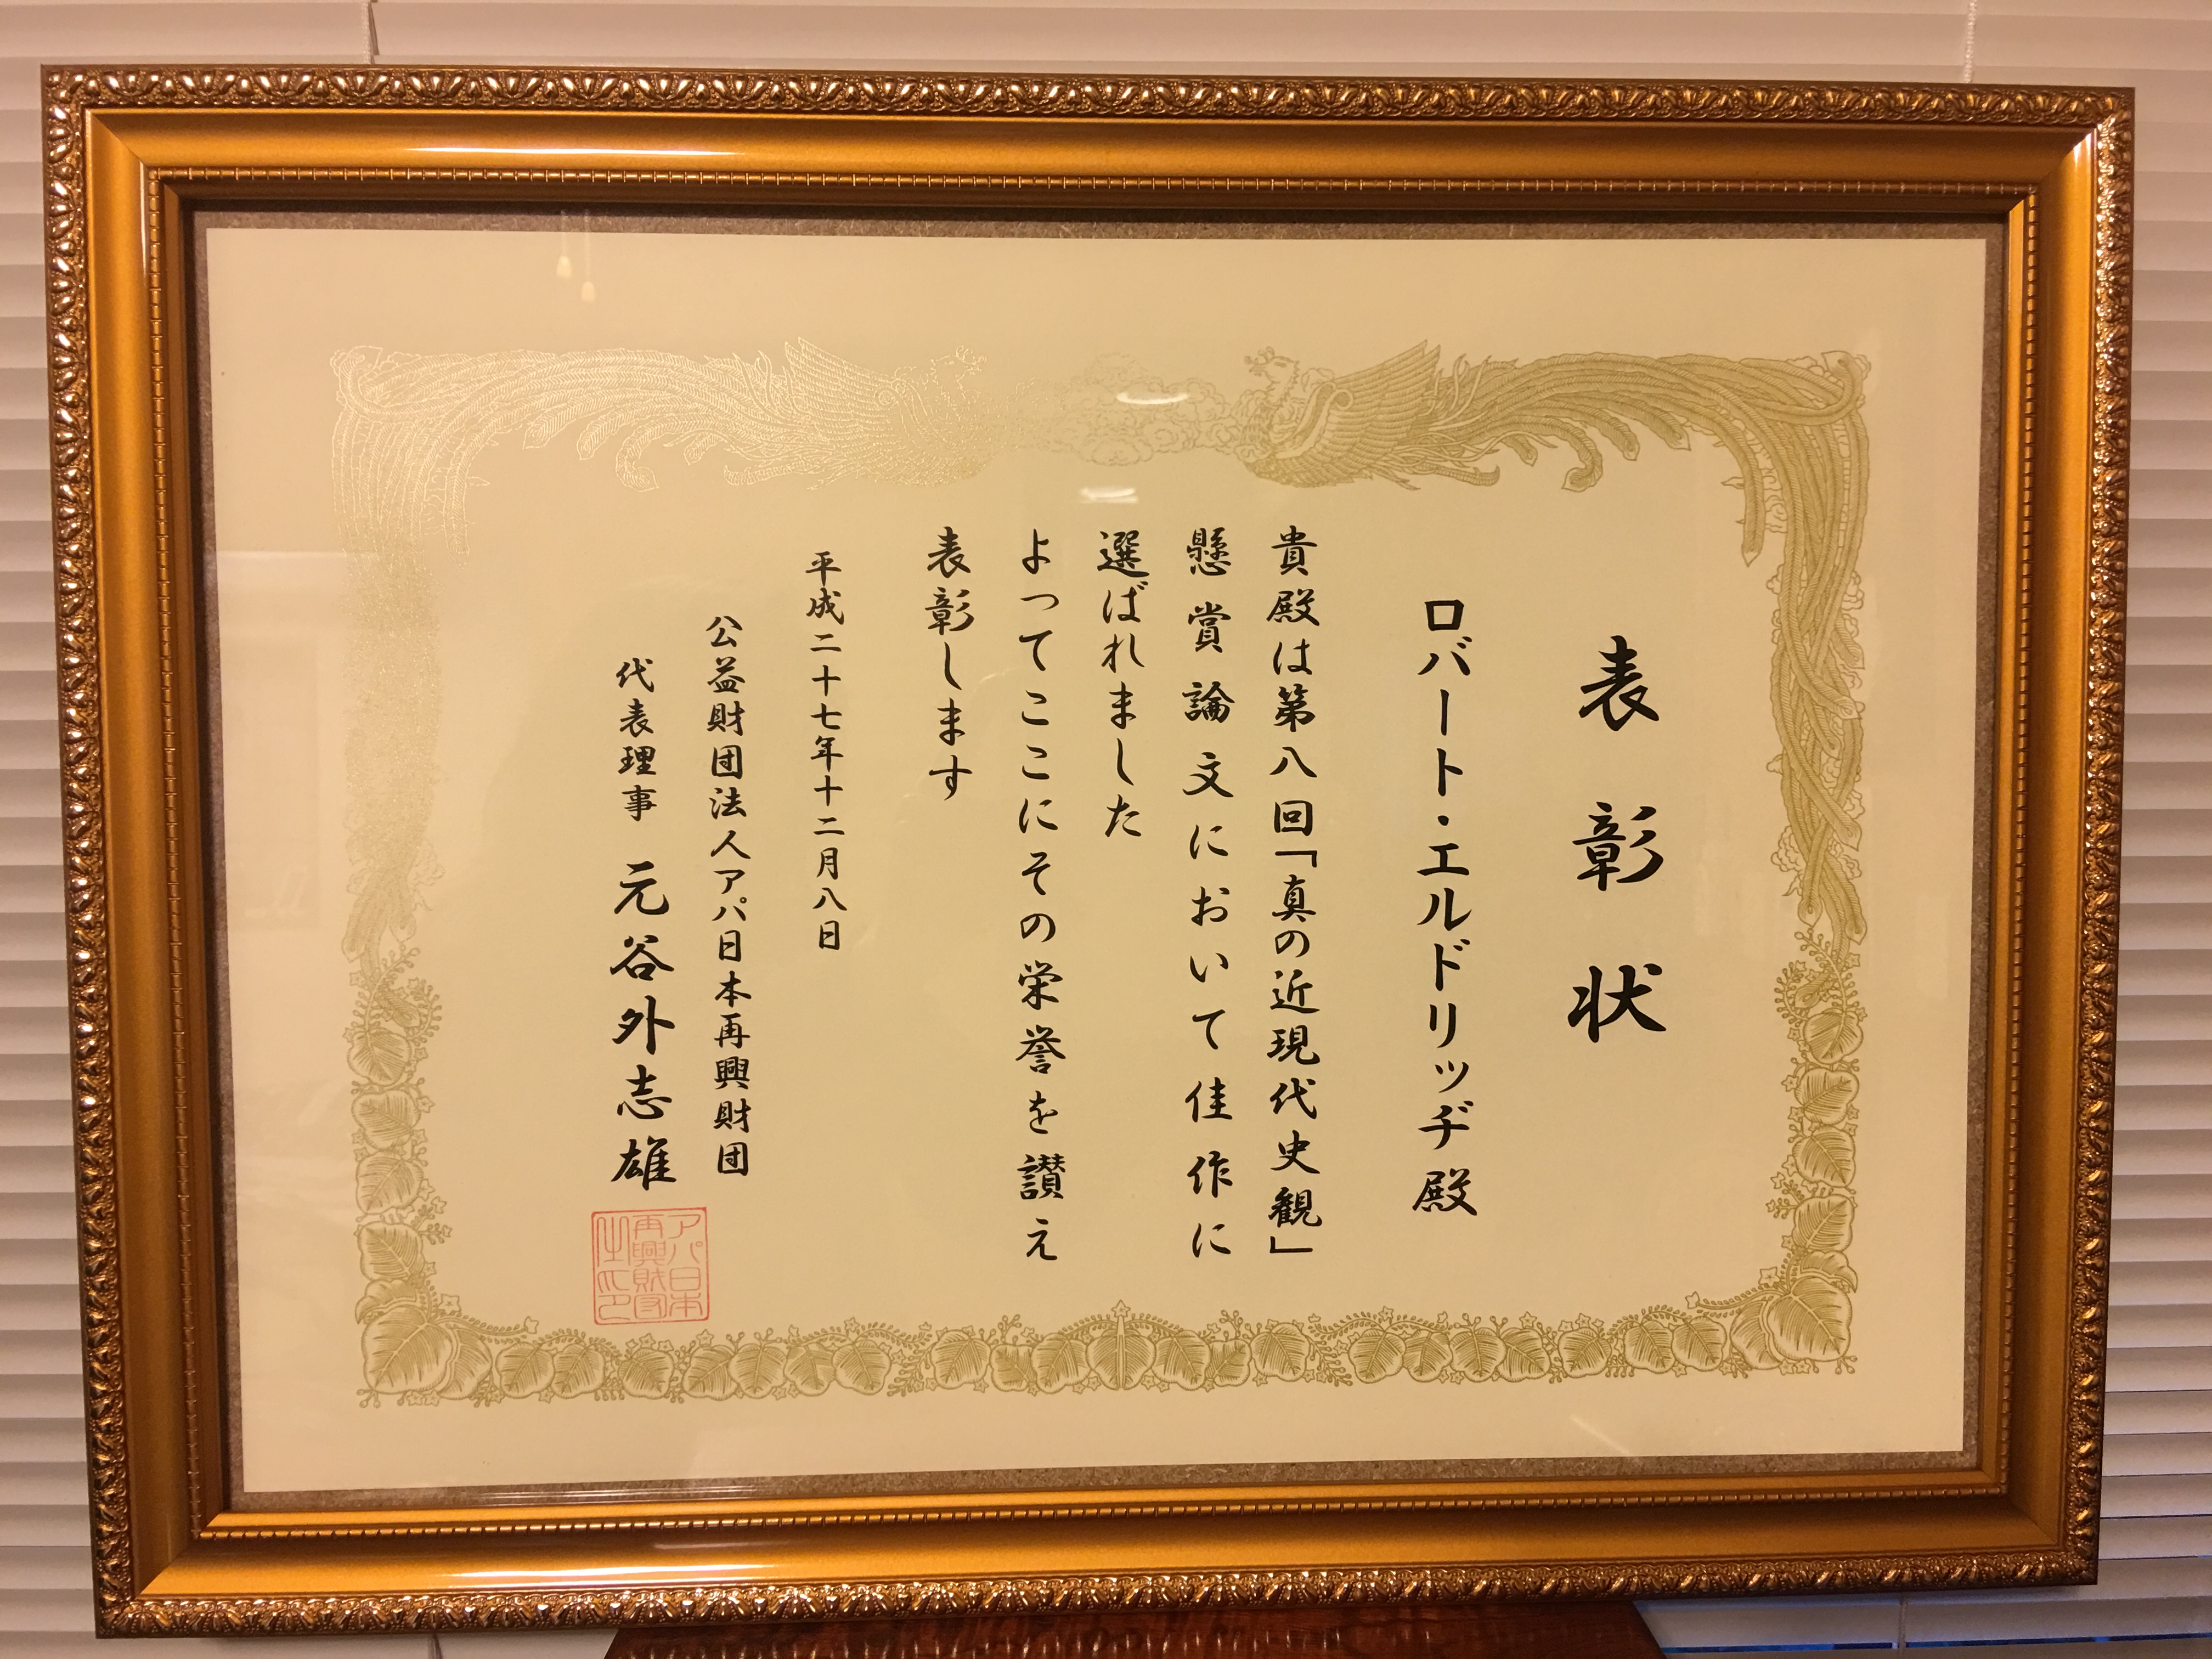 表彰状
ロバート・エルドリッヂ殿
貴殿は第八回「真の近現代史観」
懸賞論文において佳作に
選ばれました
よってここにその栄誉を讃え
表彰します
平成二十七年十二月八日
公益財団法人アパ日本再興財団
代表理事 元谷外志雄
アパ日本
再興財団
之印